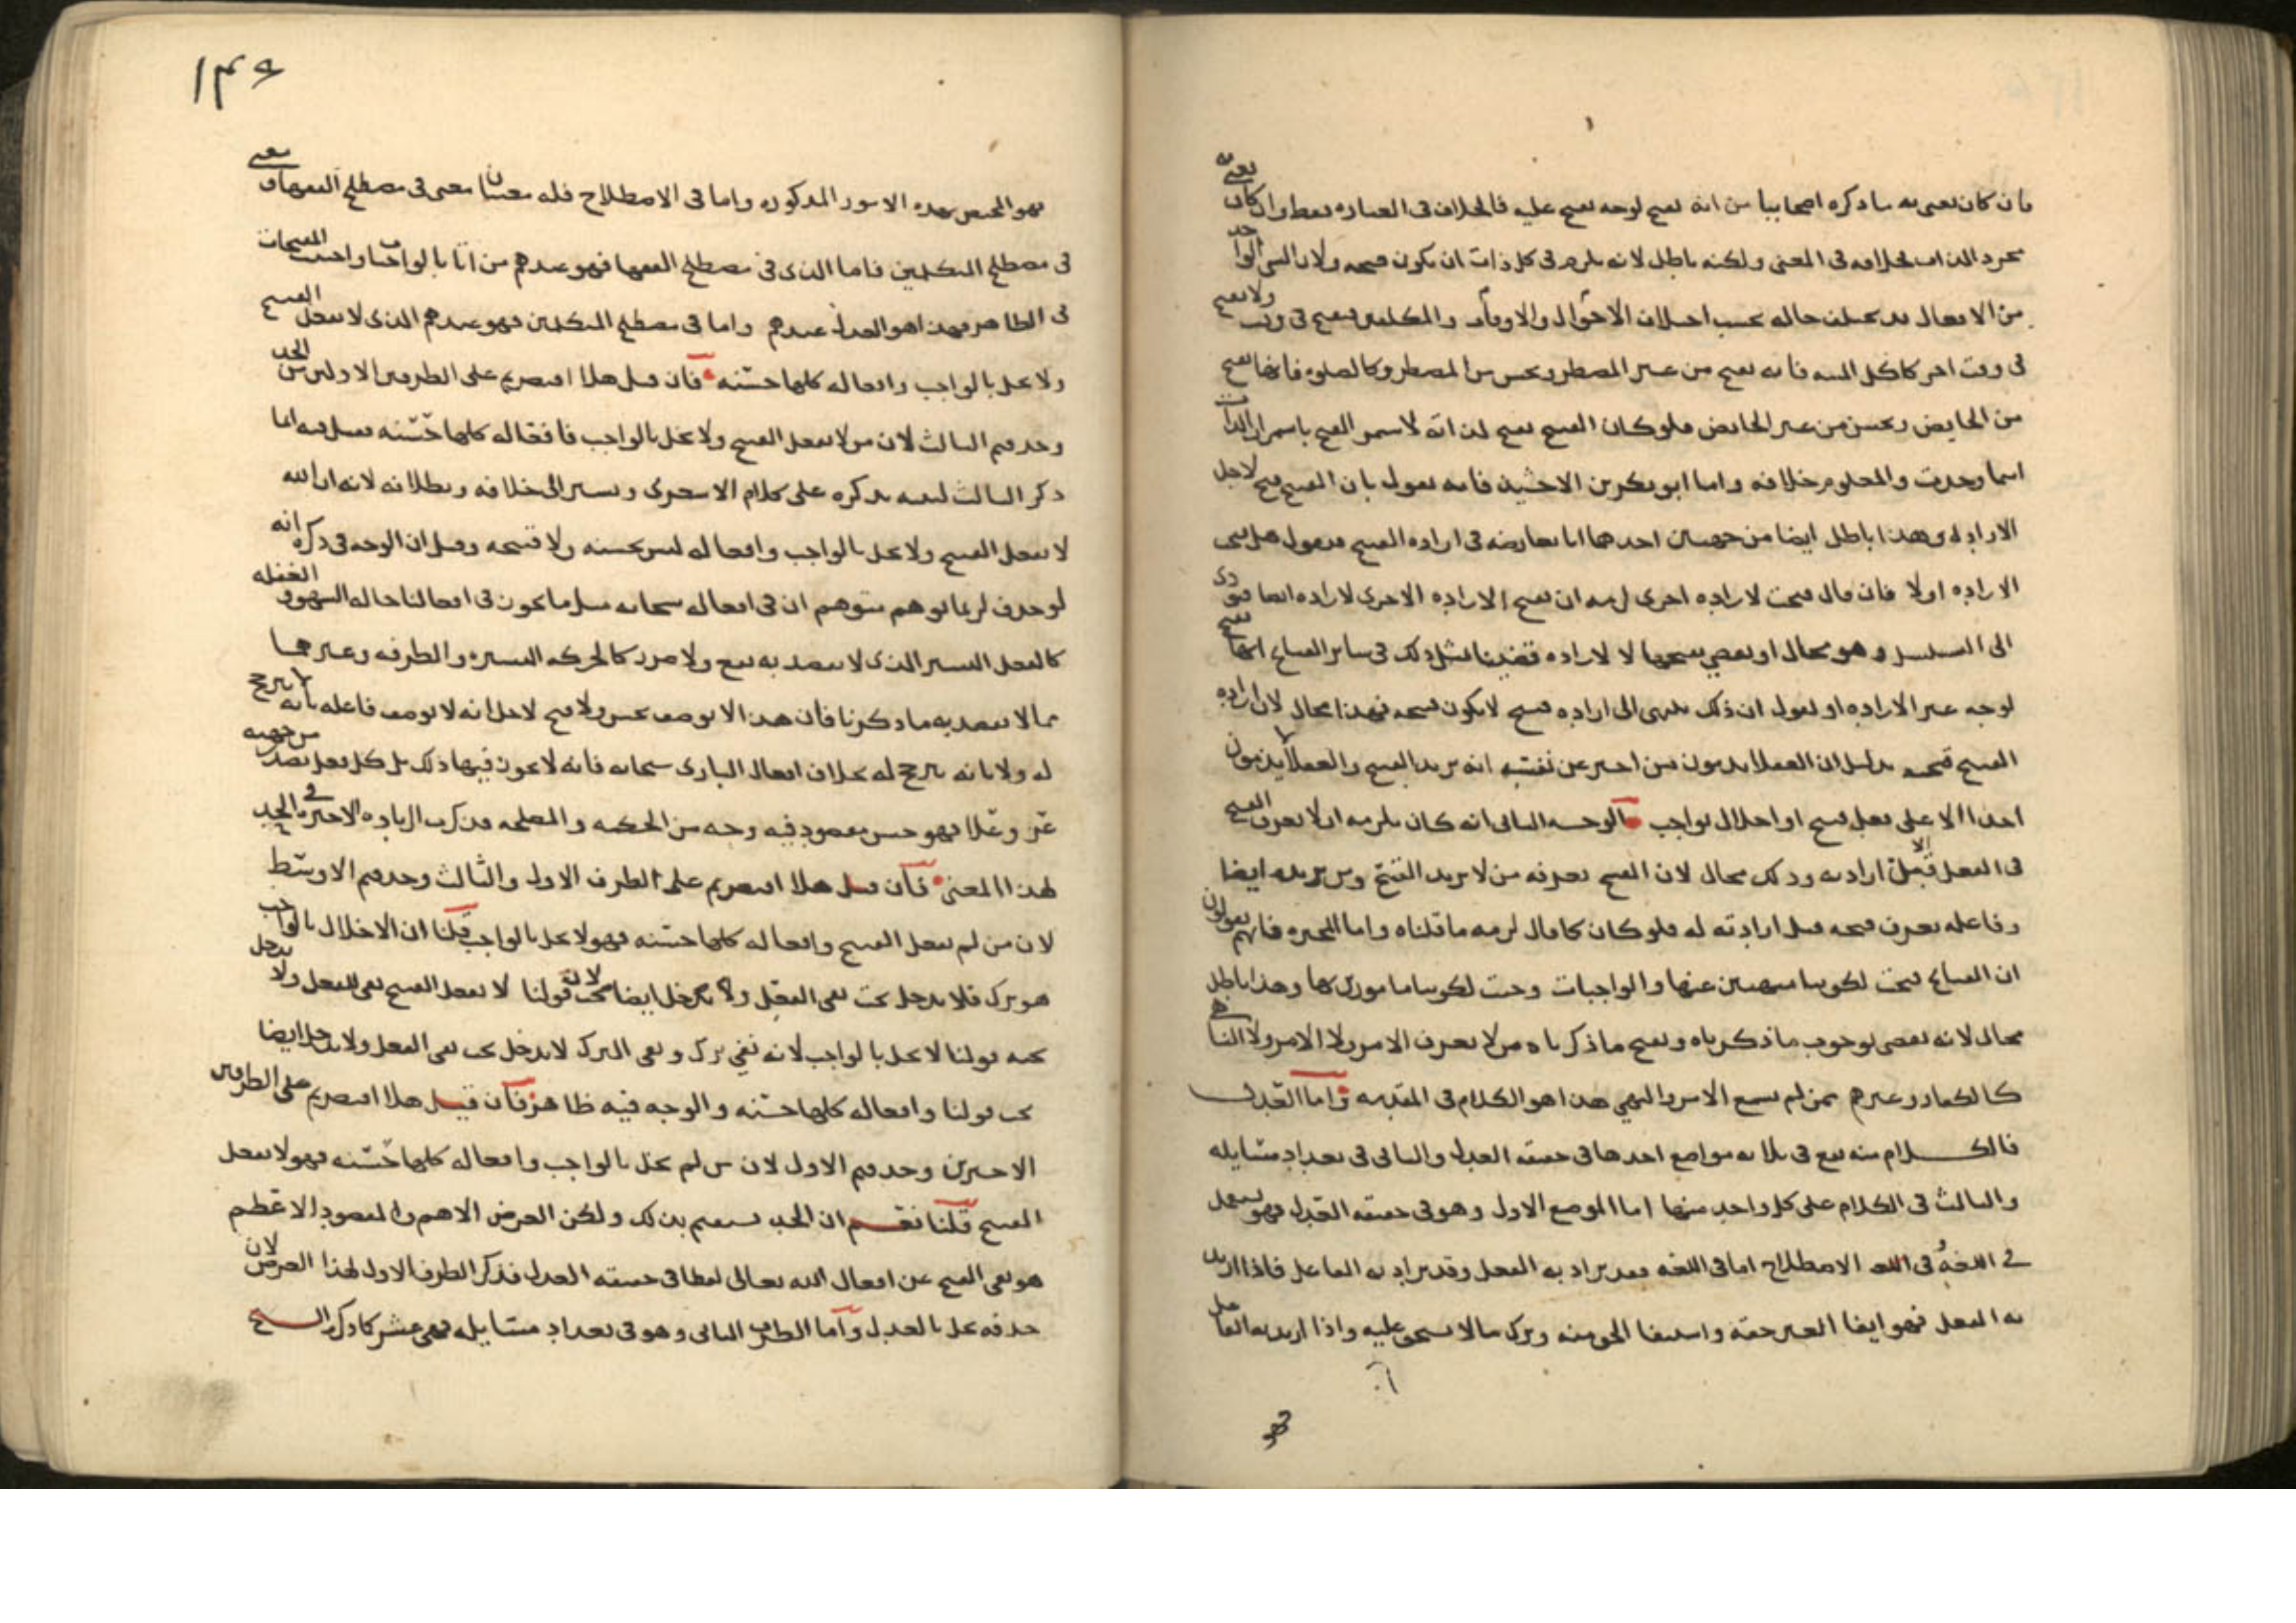 فان كان يعنى به ما ذكره اصحابنا من انه يقبح لوجه يقبح عليه فالخلاف فى العباره فقط وان كان يعنى به
مجرد الذات فخلافه فى المعنى ولكنه باطل لانه يلزم فى كل ذات ان يكون قبيحه ولان الشى الواحد
من الافعال قد يختلف حاله بحسب اختلاف الاحوال والاوقات والمكلفين فيقبح فى وقت ولا يقبح
فى وقت اخر كاكل الميته فانه يقبح من غير المضطر ويحسن من المضطر وكالصلوه فانها تقبح
من الحايض ويحسن من غير الحايض فلو كان القبيح يقبح لذاته لاستمر القبح باستمرار الذات
اينما وجدت والمعلوم خلافه واما ابو بكر بن الاخشيذ فانه يقول بان القبيح قبح لاجل
الاراده وهذا باطل ايضا من جهتين احدهما انا نعارضه فى اراده القبيح فنقول هل قبحت
الاراده اولا فان قال قبحت لاراده اخرى لزمه ان تقبح الاراده الاخرى لاراده ايضا فيودى
الى التسلسل وهو محال او يقضي بقبحها لا لاراده قضينا بمثل ذلك فى ساير القبايح انها تقبح
لوجه غير الاراده او يقول ان ذلك ينتهى الى اراده قبيح لا يكون قبيحه فهذا محال لان اراده
القبيح قبيحه بدليل ان العقلا يذمون من اخبر عن نفسه انه يريد القبيح والعقلا لا يذمون
احدا الا على فعل قبيح او اخلال بواجب والوجه الثانى انه كان يلزمه ان لا يعرف القبيح
فى الفعل قبل ارادته وذلك محال لان القبيح يعرفه من لا يريد القبيح ومن يريده ايضا
وفاعله يعرف قبحه قبل ارادته له فلو كان كما قال لزمه ما قلناه واما المجبره فانهم يقولون
ان القبايح قبحت لكوننا منهيين عنها والواجبات وجبت لكوننا مامورين بها وهذا باطل
محال لانه يقضى بوجوب ما ذكرناه وقبح ما ذكرناه من لا يعرف الامر ولا الامر ولا الناهى
كالكفار وغيرهم ممن لم يسمع الامر والنهي هذا هو الكلام فى المقدمه واما العدل
فالكلام منه يقع فى ثلاثه مواضع احدها فى حقيقه العدل والثانى فى تعداد مسايله
والثالث فى الكلام على كل واحد منها اما الموضع الاول وهو فى حقيقه العدل فهو يستعمل
فى اللغه وفى الاصطلاح اما فى اللغه فقد يراد به الفعل وقد يراد به الفاعل فاذا اريد
به الفعل فهو ايفا الغير حقه واستيفا الحق منه وترك ما لا يستحق عليه واذا اريد به الفاعل
١٣٦
فهو المختص بهذه الامور المذكوره واما فى الاصطلاح فله معنيان معنى فى مصطلح الفقها ومعنى
فى مصطلح المتكلمين فاما الذى فى مصطلح الفقها فهو عندهم من اتا بالواجبات واجتنب المقبحات
فى الظاهر فهذا هو العدل عندهم واما فى مصطلح المتكلمين فهو عندهم الذى لا يفعل القبيح
ولا يخل بالواجب وافعاله كلها حسنه فان قيل هلا اقتصرتم على الطرفين الاولين من الحد
وحذفتم الثالث لان من لا يفعل القبيح ولا يخل بالواجب فافعاله كلها حسنه قيل فيه انما
ذكر الثالث لعله يذكره على كلام الاسعرى ويشير الى خلافه وبطلانه لانه ان الله
لا يفعل القبيح ولا يخل بالواجب وافعاله ليس بحسنه ولا قبيحه وقيل ان الوجه فى ذكره انه
لو حذف لربما توهم متوهم ان فى افعاله سبحانه مثل ما يكون فى افعالنا حاله السهو والغفله
كالفعل اليسير الذى لا يقصد به نفع ولا ضرر كالحركه اليسيره والطرفه وغيرهما
مما لا يقصد به ما ذكرنا فان هذا لا يوصف بحسن ولا قبح لاجل انه لا يوصف فاعله بانه لا يترجح
له ولا بانه يترجح له بخلاف افعال البارى سبحانه فانه لا يجوز فيها ذلك بل كل فعل يصدر من جهته
عز وعلا فهو حسن مقصود فيه وجه من الحكمه والمصلحه فذكرت الزياده الاخيره فى الحد
لهذا المعنى فان قيل هلا اقتصرتم على الطرف الاول والثالث وحذفتم الاوسط
لان من لم يفعل القبيح وافعاله كلها حسنه فهو لا يخل بالواجب قلنا ان الاخلال بالواجب
هو ترك فلا يدخل تحت نفى الفعل ولا يدخل ايضا تحت قولنا لا يفعل القبيح نفى للفعل ولا يدخل
تحته قولنا لا يخل بالواجب لانه نفي ترك ونفى الترك لا يدخل تحت نفى الفعل ولا يدخل ايضا
تحت قولنا وافعاله كلها حسنه والوجه فيه ظاهر فان قيل هلا اقتصرتم على الطرفين
الاخيرين وحذفتم الاول لان من لم يخل بالواجب وافعاله كلها حسنه فهو لا يفعل
القبيح قلنا نعم ان الحد يستقيم بذلك ولكن الغرض الاهم والمقصود الاعظم
هو نفى القبيح عن افعال الله تعالى لفظا فى حقيقه العدل فذكر الطرف الاول لهذا الغرض لان
حذفه يخل بالعدل واما الطرف الثانى وهو فى تعداد مسايله فهى عشر كما ذكر الشيخ